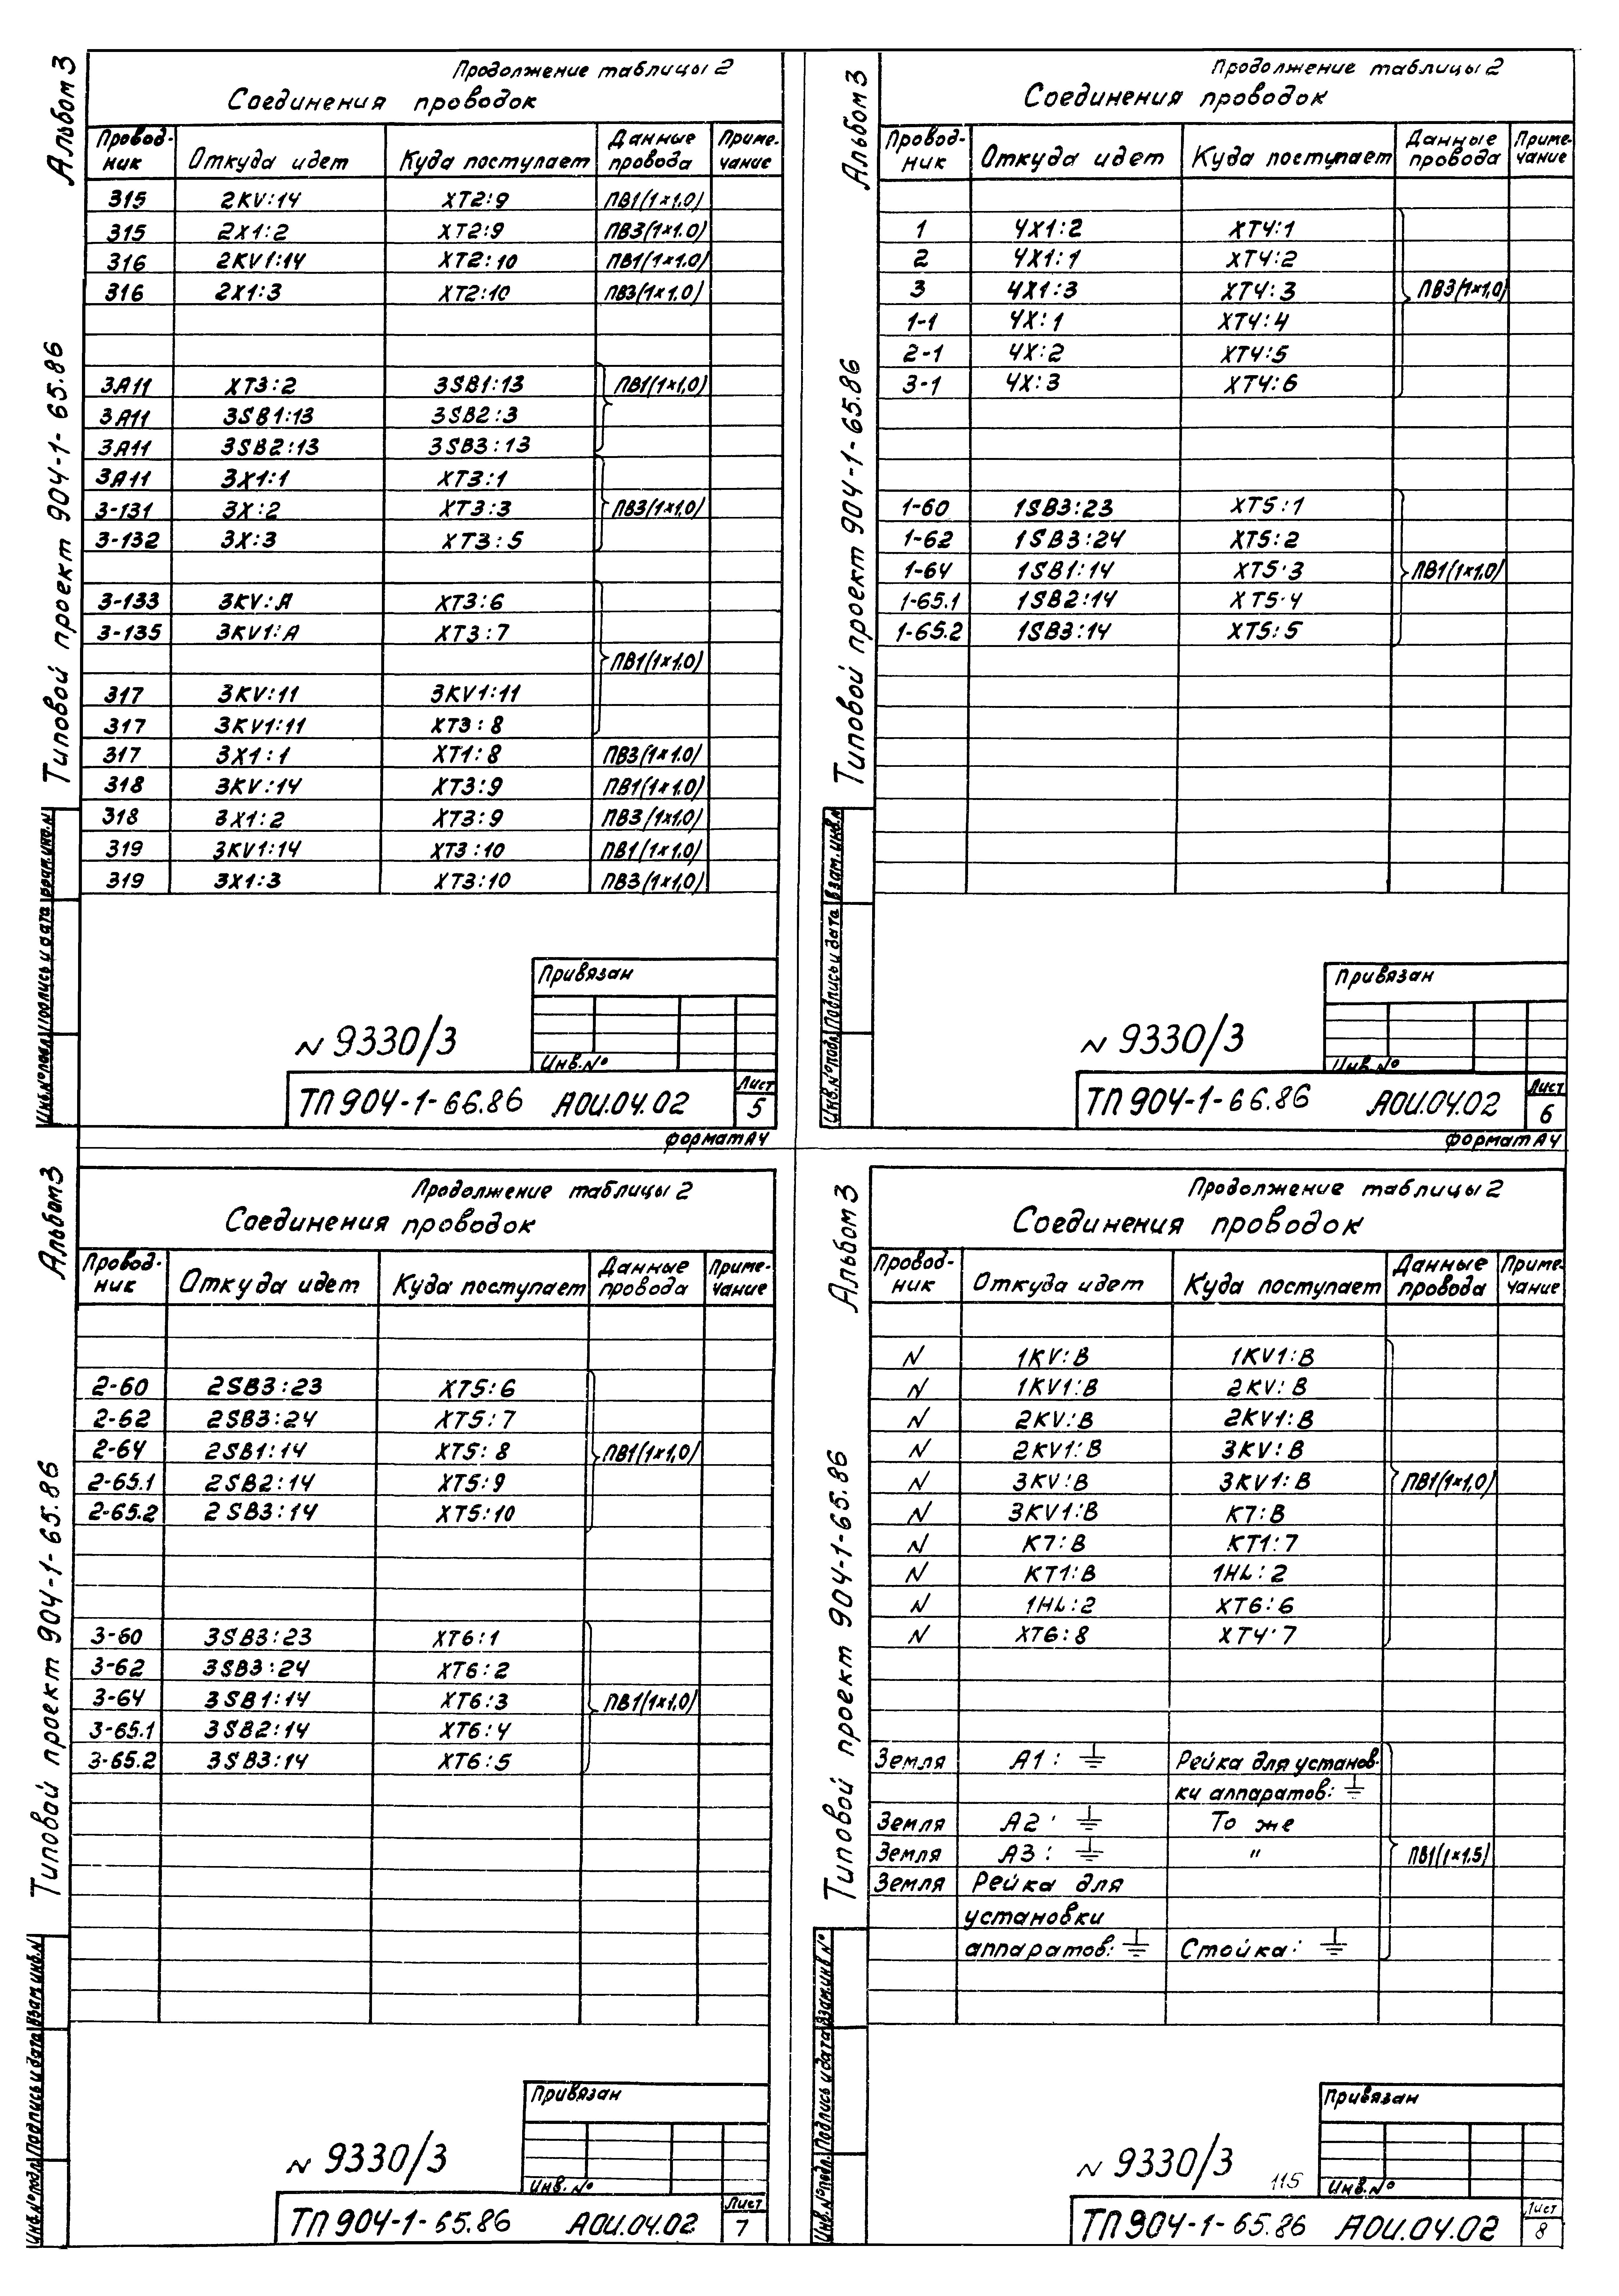 Альбом 3
Типовой проект 904-1-65.86
Продолжение таблицы 2
Соединения проводок
Провод-ник Откуда идет Куда поступает Данные провода Приме-чание
315 2KV:14 XT2:9 ПВ1(1×1.0)
315 2X1:2 XT2:9 ПВ3(1×1.0)
316 2KV1:14 XT2:10 ПВ1(1×1.0)
316 2X1:3 XT2:10 ПВ3(1×1.0)
3A11 XT3:2 3SB1:13 ПВ1(1×1.0)
3A11 3SB1:13 3SB2:3
3A11 3SB2:13 3SB3:13
3A11 3X1:1 XT3:1
3-131 3X:2 XT3:3 ПВ3(1×1.0)
3-132 3X:3 XT3:5
3-133 3KV:A XT3:6
3-135 3KV1:A XT3:7
ПВ1(1×1.0)
317 3KV:11 3KV1:11
317 3KV1:11 XT3:8
317 3X1:1 XT1:8 ПВ3(1×1.0)
318 3KV:14 XT3:9 ПВ1(1×1.0)
318 3X1:2 XT3:9 ПВ3(1×1.0)
319 3KV1:14 XT3:10 ПВ1(1×1.0)
319 3X1:3 XT3:10 ПВ3(1×1,0)
Инв.№подл. Подпись и дата Взам.инв.N
Привязан
N 9330/3
Инв.№
ТП 904-1-66.86 АОИ.04.02 Лист 5
формат А4
Альбом 3
Типовой проект 904-1-65.86
Продолжение таблицы 2
Соединения проводок
Провод-ник Откуда идет Куда поступает Данные провода Приме-чание
1 4X1:2 XT4:1
2 4X1:1 XT4:2
3 4X1:3 XT4:3 ПВ3(1×1,0)
1-1 4X:1 XT4:4
2-1 4X:2 XT4:5
3-1 4X:3 XT4:6
1-60 1SB3:23 XT5:1
1-62 1SB3:24 XT5:2
1-64 1SB1:14 XT5:3 ПВ1(1×1,0)
1-65.1 1SB2:14 XT5:4
1-65.2 1SB3:14 XT5:5
Инв.№подл. Подпись и дата Взам.инв.N
Привязан
N 9330/3
Инв.№
ТП 904-1-66.86 АОИ.04.02 Лист 6
формат А4
Альбом 3
Типовой проект 904-1-65.86
Продолжение таблицы 2
Соединения проводок
Провод-ник Откуда идет Куда поступает Данные провода Приме-чание
2-60 2SB3:23 XT5:6
2-62 2SB3:24 XT5:7
2-64 2SB1:14 XT5:8 ПВ1(1×1,0)
2-65.1 2SB2:14 XT5:9
2-65.2 2SB3:14 XT5:10
3-60 3SB3:23 XT6:1
3-62 3SB3:24 XT6:2
3-64 3SB1:14 XT6:3 ПВ1(1×1,0)
3-65.1 3SB2:14 XT6:4
3-65.2 3SB3:14 XT6:5
Инв.№подл. Подпись и дата Взам.инв.N
Привязан
N 9330/3
Инв.№
ТП 904-1-65.86 АОИ.04.02 Лист 7
Альбом 3
Типовой проект 904-1-65.86
Продолжение таблицы 2
Соединения проводок
Провод-ник Откуда идет Куда поступает Данные провода Приме-чание
N 1KV:B 1KV1:B
N 1KV1:B 2KV:B
N 2KV:B 2KV1:B
N 2KV1:B 3KV:B
N 3KV:B 3KV1:B ПВ1(1×1,0)
N 3KV1:B K7:B
N K7:B KT1:7
N KT1:B 1HL:2
N 1HL:2 XT6:6
N XT6:8 XT4:7
Земля A1: ⏚ Рейка для установ-
ки аппаратов: ⏚
Земля A2: ⏚ То же
Земля A3: ⏚ " ПВ1(1×1.5)
Земля Рейка для
установки
аппаратов: ⏚ Стойка: ⏚
Инв.№подл. Подпись и дата Взам.инв№
Привязан
N 9330/3
115
Инв.№
ТП 904-1-65.86 АОИ.04.02 Лист 8